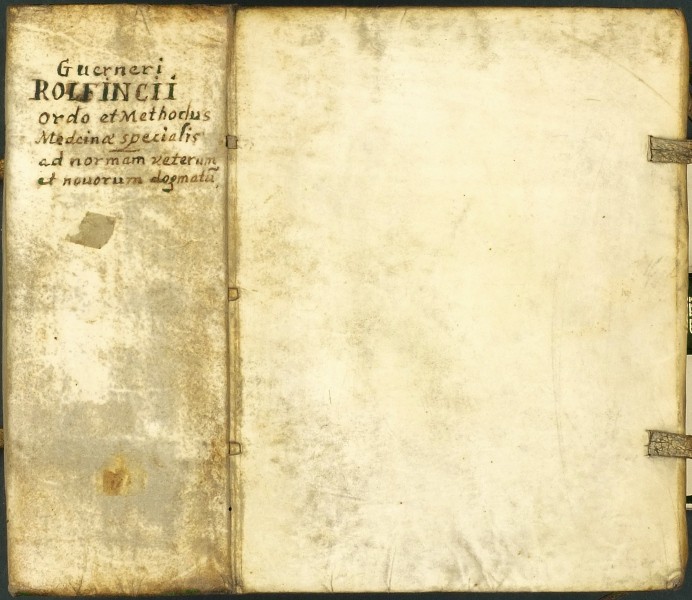 Guerneri
ROLFINCII
Ordo et Methodus
Medcinæ specialis
ad normam veterum
et novorum dogmatū,